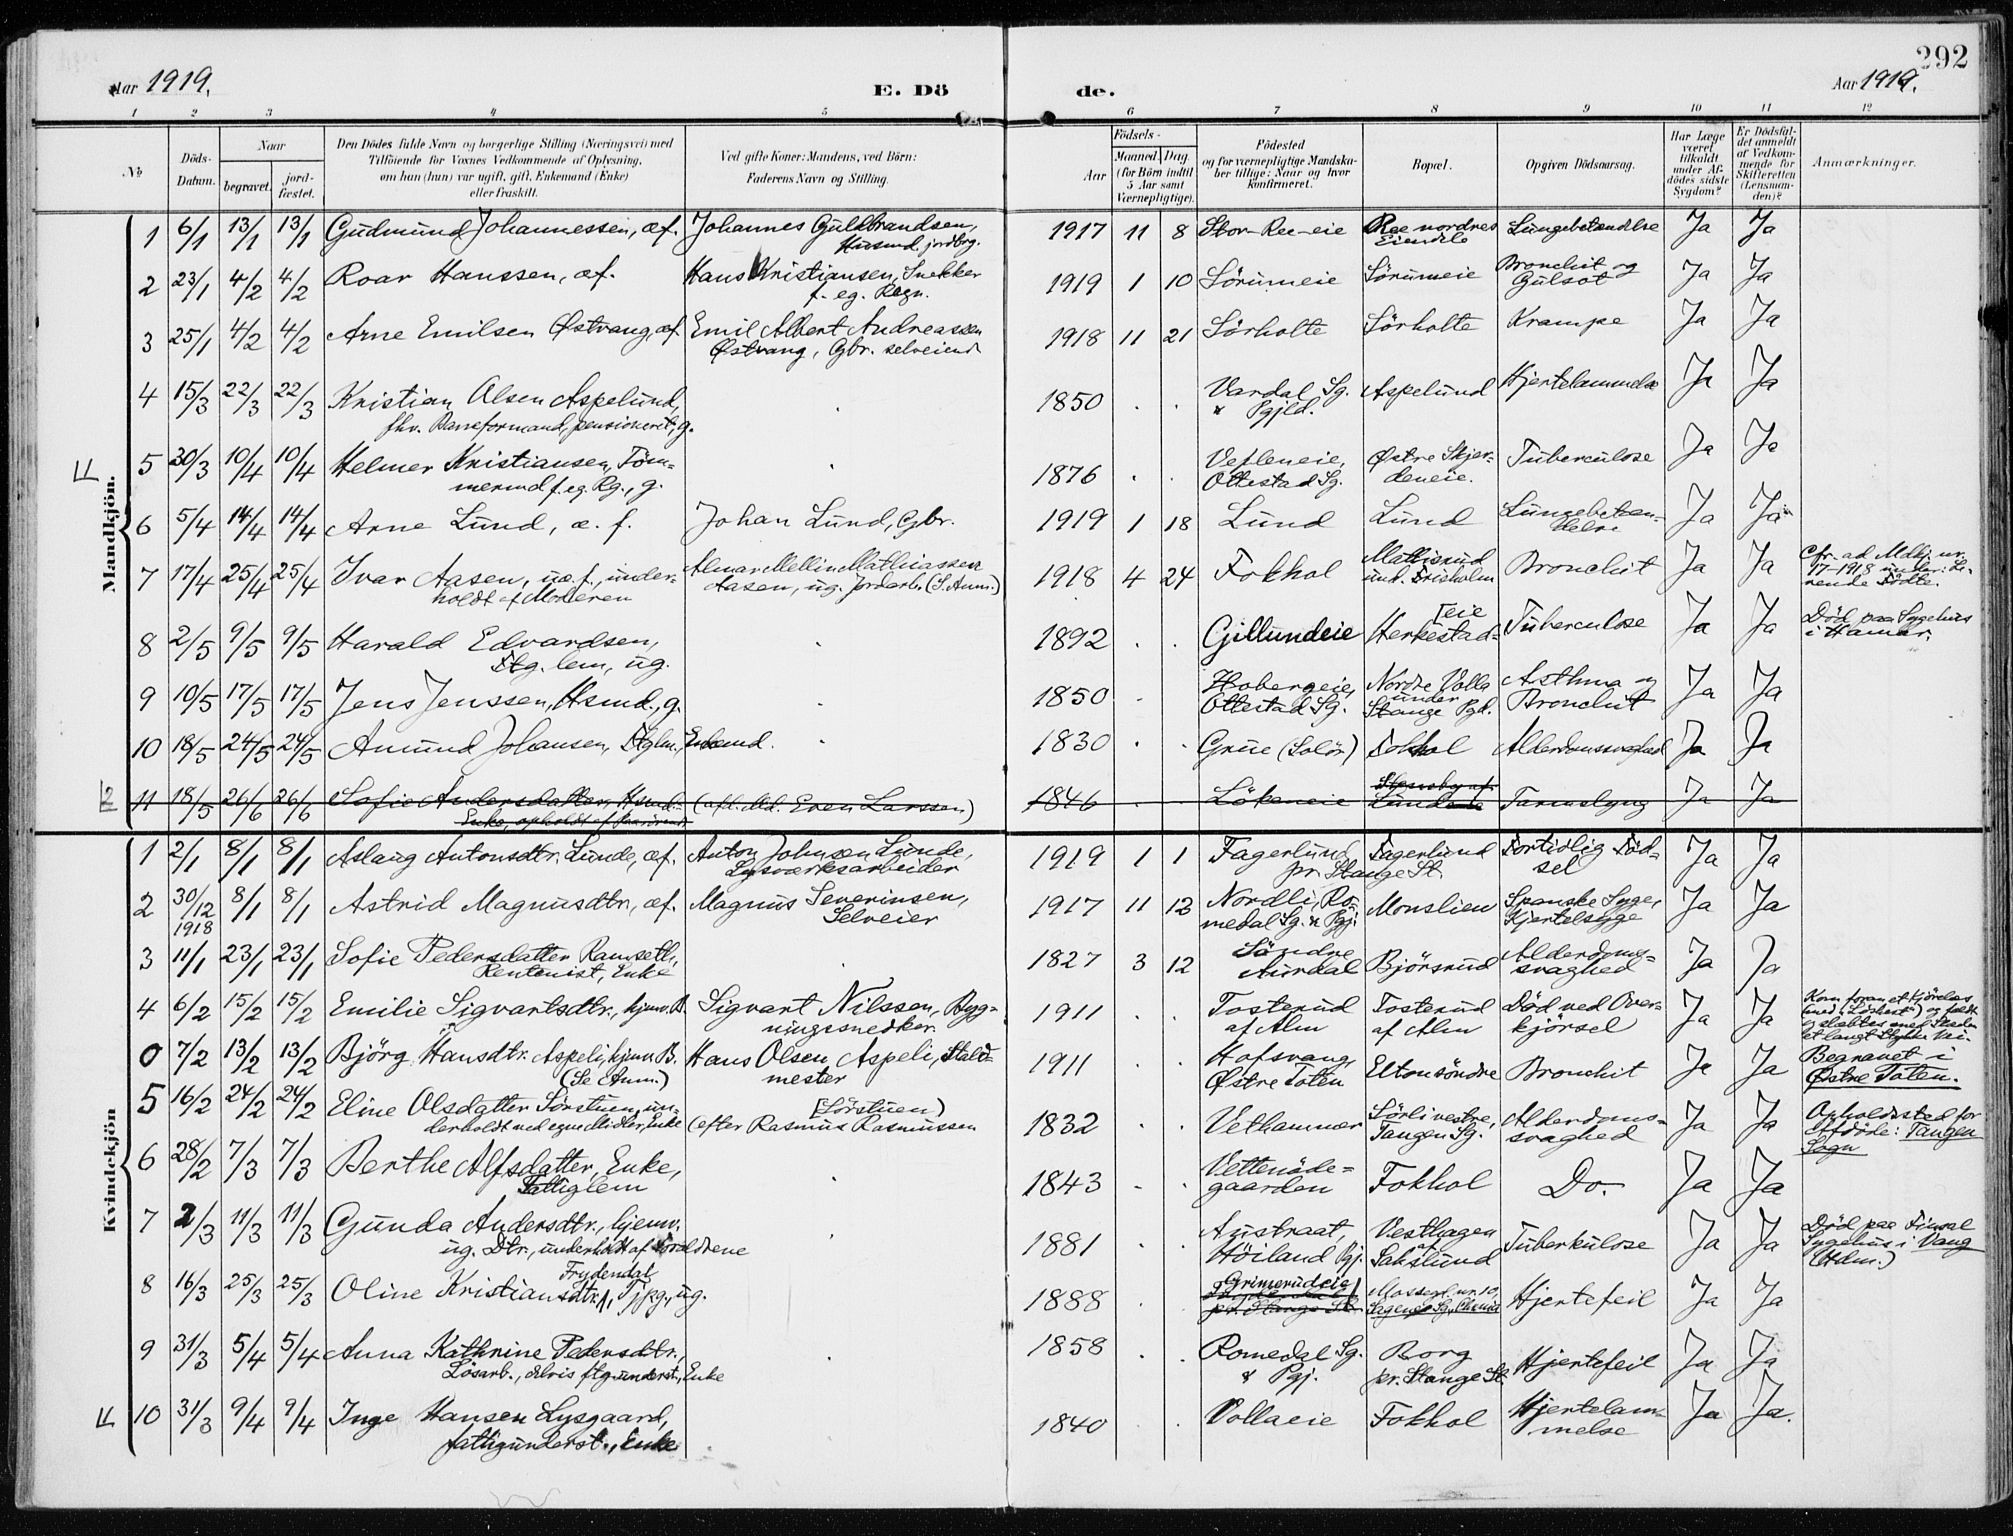 292
Aar 1919.
E. Dö
de.
Aar 1919.
1 2 3 4 5 6 7 8 9 10 11 12
№
Döds-Datum.
Naar
begravet.
jord-fæstet.
Den Dödes fulde Navn og borgerlige Stilling (Næringsvei) med
Tilföiende for Voxnes Vedkommende af Oplysning,
om han (hun) var ugift, gift, Enkemand (Enke)
eller fraskilt.
Ved gifte Koner: Mandens, ved Börn:
Faderens Navn og Stilling.
Födsels-
Aar
Maaned. Dag.
(for Börn indtil
5 Aar samt
Værnepligtige).
Födested
og for værnepligtige Mandska-
ber tillige: Naar og hvor
konfirmeret.
Bopæl.
Opgiven Dödsaarsag.
Har Læge
været
tilkaldt
under Af-
dödes sidste
Sygdom?
Er Dödsfal-
det anmeldt
af Vedkom-
mende for
Skifteretten
(Lensman-
den)?
Anmærkninger.
Mandkjön.
1 6/1 13/1 13/1 Gudmund Johannessen, æf. Johannes Guldbrandsen, 1917 11 8 Stor-Ree-eie Ree nordres Lungebetændelse Ja Ja
Husmd. jordbrg. Eiendele
2 23/1 4/2 4/2 Roar Hanssen, æf. Hans Kristiansen, Snekker 1919 1 10 Sörumeie Sörumeie Bronchit og Ja Ja
f. eg. Regn. Gulsot
3 25/1 4/2 4/2 Arne Emilsen Østvang, æf. Emil Albert Andreassen 1918 11 21 Sörholte Sörholte Krampe Ja Ja
Østvang, Gbr. selveiend
4 15/3 22/3 22/3 Kristian Olsen Aspelund, 1850 Vardal Sg. Aspelund Hjertelammelse Ja Ja
fhv. Baneformand, pensioneret, g. & Pgjld.
5 30/3 10/4 10/4 Helmer Kristiansen, Töm- 1876 Vetleneie, Østre Skjer- Tuberculose Ja Ja
mermd f. eg. Rg., g. Ottestad Sg. deneie.
6 5/4 14/4 14/4 Arne Lund, æ. f. Johan Lund, Gbr. 1919 1 18 Lund Lund Lungebetæn- Ja Ja
delse
7 17/4 25/4 25/4 Ivar Aasen, uæ.f., under- Almar Mellin Mathiassen 1918 4 24 Fokhol Mattisrud Bronchit Ja Ja Cfr. ad Mdkj. nr.
holdt af Moderen Aasen, ug. Jordarb. (S. Anm.) und. Frisholm 17-1918 under: Le-
vende Födte.
8 2/5 9/5 9/5 Harald Edvardsen, 1892 Gillundeie Herkestad- Tuberculose Ja Ja Död paa Sygehus
Ftg. lem, ug. eie i Hamar.
9 10/5 17/5 17/5 Jens Jenssen, Hsmd., g. 1850 Hobergeie, Nordre Volla Asthma og Ja Ja
Ottestad Sg. under Stange Pgd. Bronchit
10 18/5 24/5 24/5 Amund Johansen, Ftglm., Enkemd. 1830 Grue (Solör) Fokhol Alderdomssvaghed Ja Ja
11 18/5 26/6 26/6 Sofie Andersdatter, Hsmd.- (afd. Md. Even Larssen) 1846 Lökeneie Lunde Tarmslyng Ja Ja
Enke, opholdt af Paarörende
Kvindekjön
1 2/1 8/1 8/1 Aslaug Antonsdtr. Lunde, æf. Anton Johnsen Lunde, 1919 1 1 Fagerlund Fagerlund Fortidlig Föd- Ja Ja
Lysværksarbeider pr. Stange St. sel
2 30/12 1918 8/1 8/1 Astrid Magnusdtr., æf. Magnus Severinsen, 1917 11 12 Nordli, Ro- Monslien Spanske Syge, Ja Ja
Selveier medal Sg. & Pgj. Kjertelsyge
3 11/1 23/1 23/1 Sofie Pedersdatter Ramseth, 1827 3 12 Söndre Björsrud Alderdoms- Ja Ja
Rentenist, Enke Aurdal svaghed
4 6/2 15/2 15/2 Emilie Sigvartsdtr., hjemv. B. Sigvart Nilssen, Byg- 1911 Tosterud Tosterud Död ved Over- Ja Ja Kom foran et Kjörelæs
ningssnedker. af Alm af Alm kjörsel
0 7/2 13/2 13/2 Björg Hansdtr. Aspeli, hjemv. B. Hans Olsen Aspeli, Stald- 1911 Hofsvang, Eltonsöndre Bronchit Ja Ja Begravet i
(Se Anm.) mester Østre Toten Østre Toten.
5 16/2 24/2 24/2 Eline Olsdatter Sörstuen, un- (Sörstuen) 1832 Vethammer Sörlivestre, Alderdoms- Ja Ja Opholdssted for
derholdt ved egne Midler, Enke (efter Rasmus Rasmussen Tangen Sg. svaghed Afdöde: Tangen
Sogn
6 28/2 7/3 7/3 Berthe Alfsdatter, Enke, 1843 Vettenöde- Fokhol Do. Ja Ja
Fattiglem gaarden
7 2/3 11/3 11/3 Gunda Andersdtr., hjemv. 1881 Austraat, Vesthagen Tuberkulose Ja Ja Död paa Finsal
ug. Dtr., underholdt af Foreldrene Höiland Pgj. af Sakslund Sygehus i Vang
(Hdm.)
8 16/3 25/3 25/3 Oline Kristiansdtr. Frydendal, Tjpg., ug. 1888 Grimerudeie Mossegt. nr. 10, Hjertefeil Ja Ja
Sagene Sg., Chrnia
9 31/3 5/4 5/4 Anna Kathrine Pedersdtr., 1858 Romedal Sg. Borg Hjertefeil Ja Ja
Lösarb., delvis ftg. underst., Enke & Pgj. pr. Stange St.
10 31/3 9/4 9/4 Inge Hansen Lysgaard, 1840 Vollaeie Fokhol Hjertelam- Ja Ja.
fattigunderst., Enke melse